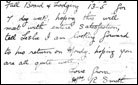 Full Board & Lodging 13-6 for
7 day week, hoping this will
meet with entire satisfaction
Tell Leslie I am looking forward
to his return on Monday, hoping you
are all quite well
Love from
R. Smith